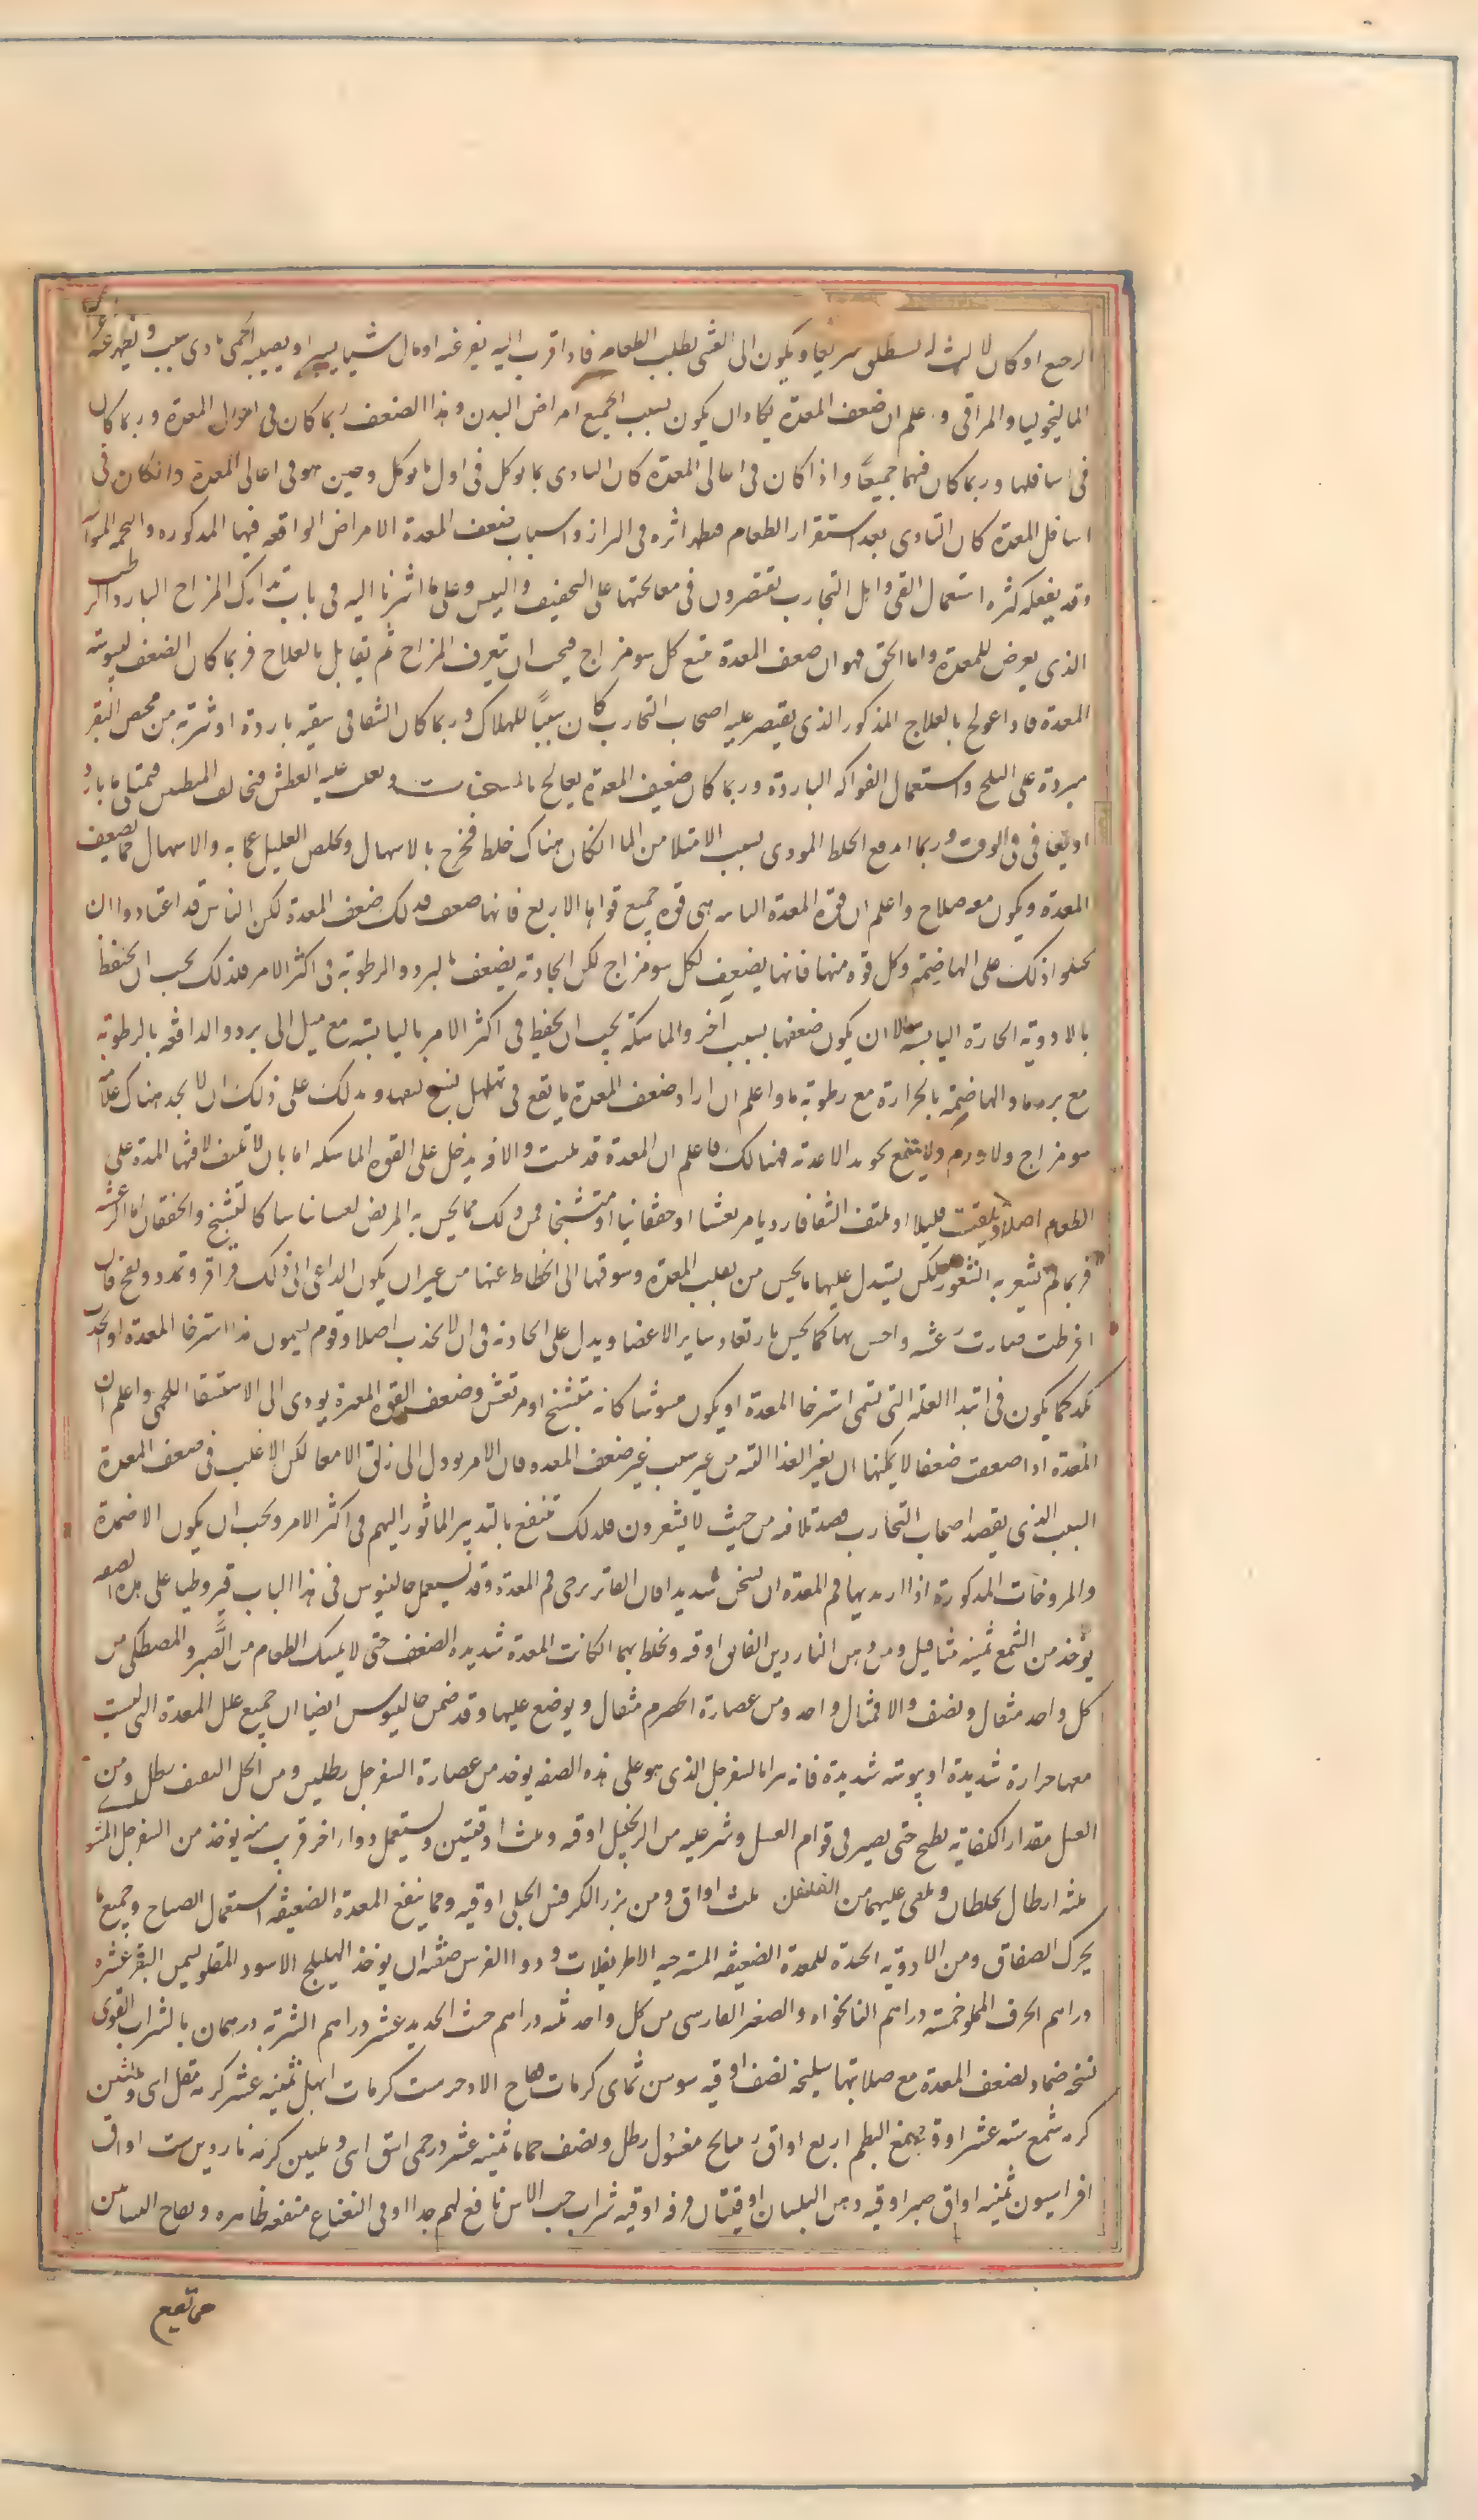 الرجع او كان لا لبث له استطلق سريعا ويكون الى الغثى يطلب الطعام فاذا قرب اليه نفر عنه او نال شيا يسيرا او يصيبه الحمى بادى سبب ويظهر عنه
الماليخوليا والمراقى واعلم ان ضعف المعدة يكاد ان يكون سبب الجميع امراض البدن وهذا الضعف ربما كان فى اعالى المعدة وربما كان
فى اسافلها وربما كان فيهما جميعًا واذا كان فى اعالى المعدة كان التاذى بما يوكل فى اول ما يوكل وحين هو فى اعالى المعدة وان كان فى
اسافل المعدة كان التاذى بعد استقرار الطعام فيظهر اثره فى البراز واسباب ضعف المعدة الامراض الواقعه فيها المذكوره والتخمه المتوا
وقد يفعله كثره استعمال القى واهل التجارب يقتصرون فى معالجتها على التجفيف واليبس وعلى ما اشرنا اليه فى باب تدارك المزاج البارد الرطب
الذى يعرض للمعدة واما الحق فهو ان ضعف المعدة يتبع كل سومزاج فيجب ان يتعرف المزاج ثم يقابل بالعلاج فربما كان الضعف ليبوسة
المعدة فاذا عولج بالعلاج المذكور الذى يقتصر عليه اصحاب التجارب كان سببًا للهلاك وربما كان الشفا فى سقيه باردة او شربة من مخيض البقر
مبردة على الثلج واستعمال الفواكه الباردة وربما كان ضعيف المعدة يعالج بالمسخنات ويغلب عليه العطش فيخالف المتطببين فيمتلى ما بارد
او يعافى فى الوقت وربما اندفع الخلط الموذى بسبب الامتلا من الما ان كان هناك خلط فخرج بالاسهال ويخلص العليل عما به والاسهال مما يضعف
المعدة ويكون معه صلاح واعلم ان قوة المعدة التامه هى قوة جميع قواها الاربع فايها ضعف فذلك ضعف المعدة لكن الناس قد اعتادوا ان
يحيلوا ذلك على الهاضمة وكل قوه منها فانها يضعف لكل سومزاج لكن الجاذبة يضعف بالبرد والرطوبة فى اكثر الامر فلذلك يجب ان يحفظ
بالادوية الحارة اليابسة الا ان يكون ضعفها بسبب آخر والماسكة يجب ان يحفظ فى اكثر الامر باليابسة مع ميل الى برد والدافعه بالرطوبة
مع برد ما والهاضمة بالحرارة مع رطوبة ما واعلم ان اردا ضعف المعدة ما يقع فى تهلهل نسج ليفها ويدلك على ذلك ان لا يجد هناك علامة
سومزاج ولا ورم ولا ينتفع بجويد الاغذية فهنالك فاعلم ان المعدة قد بليت والافه يدخل على القوة الماسكه اما بان لا يلتف لافتها المعدة على
الطعام اصلا او يلتف قليلا او يلتف التفافا رديا مرتعشا او خفقانيا او متشنجا فمن ذلك مما يحس به المريض احساسا بينا كالتشنج والخفقان واما الرعشه
فربما لم يشعر به الشعور لكن يستدل عليها بما يحس من تقلب المعدة وشوقها الى انحطاط عنها من غير ان يكون الداعى الى ذلك قراقر وتمدد ونفخ فان
افرطت صارت رعشه واحس بها كما يحس بارتعاد ساير الاعضا ويدل على الجاذبة فى ان لا يجذب اصلا وقوم يسمون هذا استرخا المعدة او يجذب
نكد كما يكون فى ابتدا العله التى تسمى استرخا المعدة او يكون مشوشا كانه متشنج او مرتعش وضعف القوه المعدة يودى الى الاستسقا اللحمى واعلم ان
المعدة اذا ضعفت ضعفا لا يمكنها ان يغير الغذا البته من غير سبب غير ضعف المعده فان الامر يوول الى زلق الامعا لكن الاغلب فى ضعف المعدة
السبب الذى يقصد اصحاب التجارب قصد تلافيه من حيث لا يشعرون فلذلك ينتفع بالتدبير الماثور اليهم فى اكثر الامر ويجب ان يكون الاضمدة
والمروخات المذكورة اذا اريد بها فم المعدة ان يسخن شديدا فان الفاتر يرخى فم المعدة وقد يستعمل جالينوس فى هذا الباب قيروطيا على هذه الصفه
يوخذ من الشمع ثمنيه مثاقيل ومن دهن الناردين الفايق اوقيه ويخلط بهما ان كانت المعدة شديده الضعف حتى لا يمسك الطعام من الصبر والمصطكى من
كل واحد مثقال ونصف والا فمثقال واحد ومن عصارة الحصرم مثقال ويوضع عليها وقد ضمن جالينوس ايضا ان جميع علل المعدة التى ليست
معها حرارة شديدة او يبوسة شديدة فانه يبرا بالسفرجل الذى هو على هذه الصفه يوخذ من عصارة السفرجل رطلين ومن الخل الثقيف رطل ومن
العسل مقدار الكفاية يطبخ حتى يصير فى قوام العسل وينثر عليه من الزنجبيل اوقيه وثلث اوقيتين ويستعمل دوا اخر قريب منه يوخذ من السفرجل المشو
ثلثه ارطال يخلطان ويلقى عليهما من الفلفل ثلث اواق ومن بزر الكرفس الجبلى اوقيه ومما ينفع المعدة الضعيفه استعمال الصياح وجميع ما
يحرك الصفاق ومن الادوية الجيدة للمعدة الضعيفه المسترخيه الاطريفلات ودوا الفرس صفته ان يوخذ الهليلج الاسود المقلو بسمن البقر عشره
دراهم الحرف المقلو خمسة دراهم النانخواه والصعتر الفارسى من كل واحد ثلثه دراهم خبث الحديد عشر دراهم الشربة درهمان بالشراب القوى
نسخه ضماد لضعف المعدة مع صلابتها سليخه نصف اوقيه سوسن ثمانى كرمات فقاح الاذخر ست كرمات ابهل ثمنيه عشر كرمه مقل اى وثلثين
كرمه شمع سته عشر اوقيه صمغ البطم اربع اواق راتيانج مغسول رطل ونصف حماما ثمنيه عشر درخمى اشق اى وثلثين كرمه ناردين ست اواق
افراسيون ثمنيه اواق صبر اوقيه دهن البلسان اوقيتان قرفه اوقيه شراب حب الاس نافع لهم جدا وفى النعناع منفعه ظاهره وتفاح البساتين